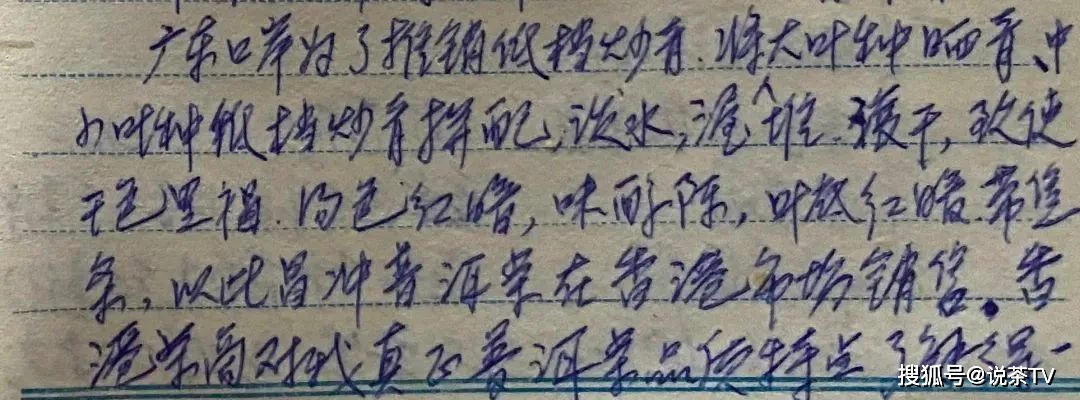 广东口岸为了推销低档炒青.将大叶种晒青、中
小叶种低档炒青拼配,泼水,渥堆.滚干,致使
干色黑褐.汤色红暗,味醇陈,叶底红暗带焦
条,以此冒冲普洱茶在香港市场销售。香
港茶商对我真正普洱茶品质特点了解
搜狐号@说茶TV